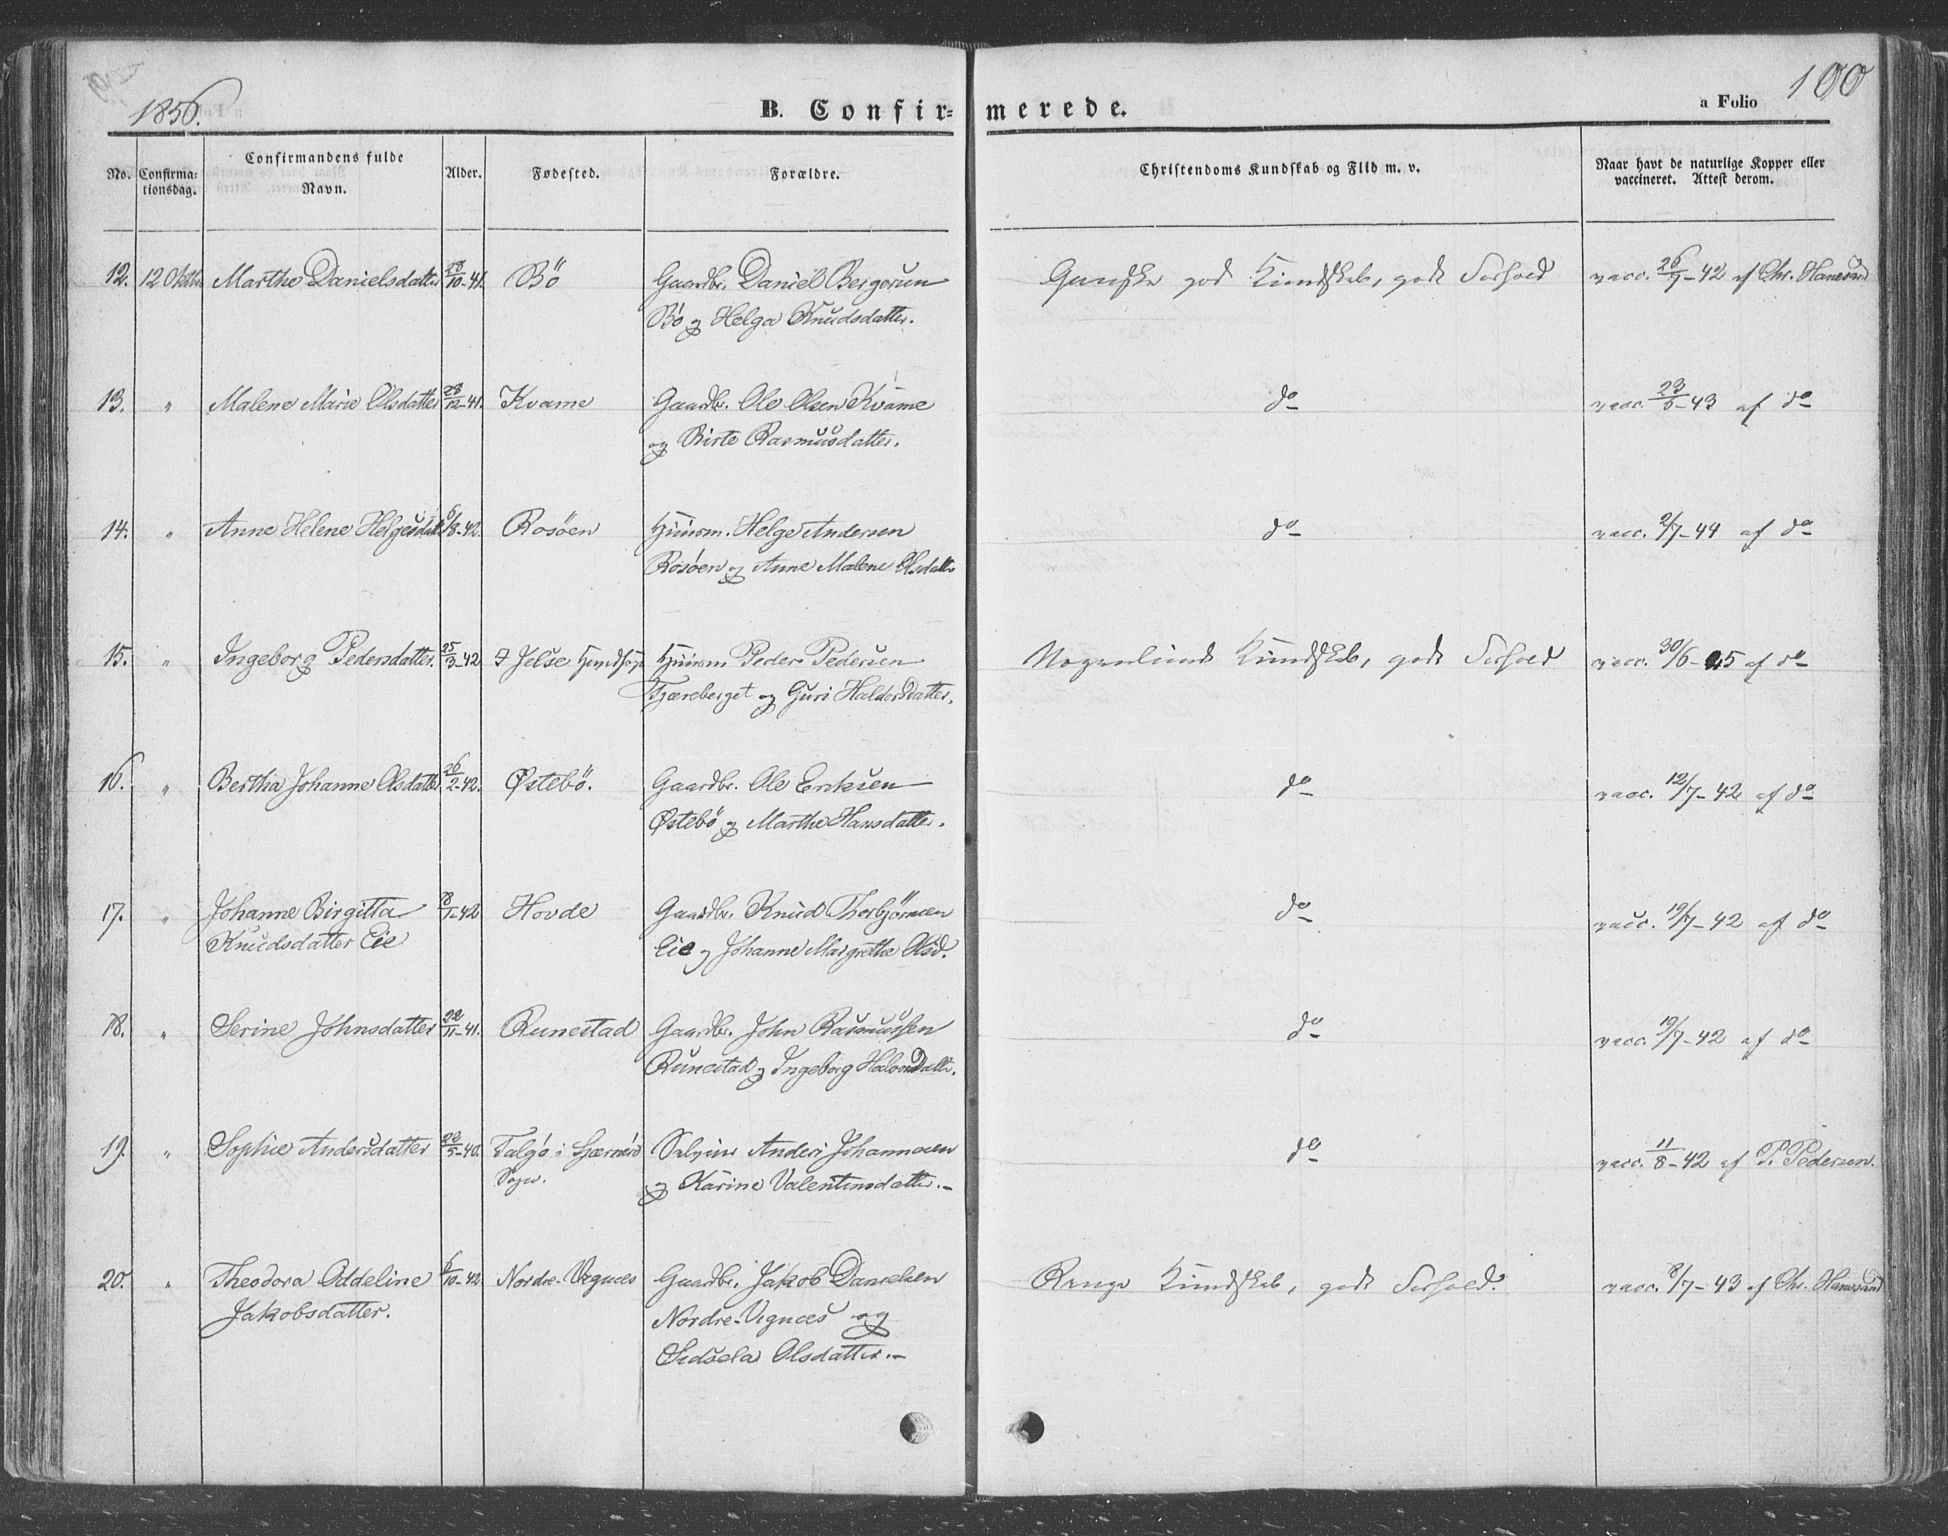 1856.
B. Confir-
merede.
a Folio
100
No.
Confirma-
tionsdag.
Confirmandens fulde
Navn.
Alder.
Fødested.
Forældre.
Christendoms Kundskab og Flid m. v.
Naar havt de naturlige Kopper eller
vaccineret. Attest derom.
12. 12 Oktbr Marthe Danielsdatter 28/10-41. Bö Gaardbr. Daniel Bergesen Gandske god Kundskab, godt Forhold vacc. 26/7-42 af Chr. Hanesand
Bö og Helga Knudsdatter.
13. " Malene Marie Olsdatter 28/12-41. Kvame Gaardbr. Ole Olsen Kvame do vacc. 23/6-43 af do
og Birte Rasmusdatter.
14. " Anne Helene Helgesdatt 6/8-42. Rosöen Huusm. Helge Andersen do vacc. 2/7-44 af do
Rosöen og Anne Malene Olsdattr
15. " Ingeborg Pedersdatter. 25/3-42 I Jelse Huusm. Peder Pedersen Nogenlunde Kundskab, godt Forhold vacc. 30/6-45 af do
Tjæreberget og Guri Haldorsdatter.
16. " Bertha Johanne Olsdatter 26/2-42. Østebö. Gaardbr. Ole Eriksen do vacc. 12/7-42 af do
Østebö og Marthe Hansdatter.
17. " Johanne Birgitta 8/1-42 Hovde Gaardbr. Knud Thorbjörnsen do vacc. 19/7-42 af do
Knudsdatter Eie Eie og Johanne Margrethe Olsd.
18. " Serine Johnsdatter 22/11-41. Runestad Gaardbr. John Rasmussen do vacc. 19/7-42 af do
Runestad og Ingeborg Halvorsdattr.
19. " Sophie Andersdatter 22/5-40. Talgö i Sjærnerö Anders Johannesen do vacc. 11/8-42 af P. Pedersen.
Sogn. og Karine Valentinsdatter.-
20. " Theodora Oddeline 6/10-42 Nordre-Vignes Gaardbr. Jakob Danielsen Ringe Kundskab, godt Forhold. vacc. 8/7-43 af Chr. Hanesand
Jakobsdatter. Nordre-Vignes og
Sidsela Olsdatter.-